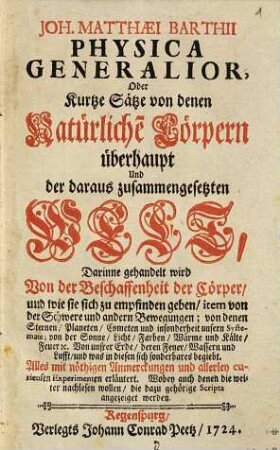 1
JOH. MATTHÆI BARTHII
PHYSICA
GENERALIOR,
Oder
Kurtze Sätze von denen
Natürlichẽ Cörpern
überhaupt
Und
der daraus zusammengesetzten
WELT,
Darinne gehandelt wird
Von der Beschaffenheit der Cörper/
und wie sie sich zu empfinden geben/ item von
der Schwere und andern Bewegungen; von denen
Sternen/ Planeten/ Cometen und insonderheit unsern Syste-
mate; von der Sonne/ Licht/ Farben/ Wärme und Kälte/
Feuer ꝛc. Von unser Erde/ deren Feuer/ Wassern und
Lufft/ und was in diesen sich sonderbares begiebt.
Alles mit nöthigen Anmerckungen und allerley cu-
rieusen Experimenten erläutert. Wobey auch denen die wei-
ter nachlesen wollen/ die dazu gehörige Scripta
angezeiget werden.
Regenspurg/
Verlegts Johann Conrad Peetz/ 1724.